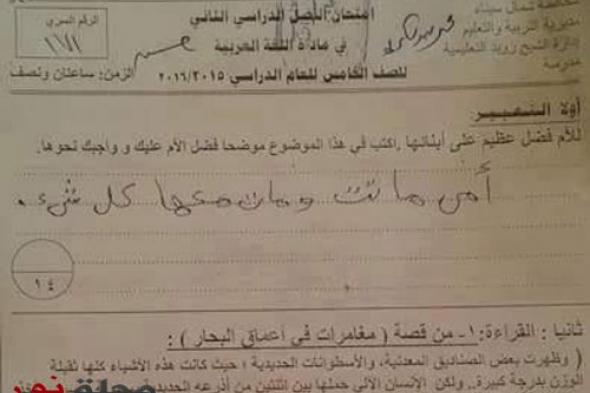 محافظة شمال سيناء
مديرية التربية والتعليم
إدارة الشيخ زويد التعليمية
مدرسة
امتحان الفصل الدراسي الثاني
في مادة اللغة العربية
للصف الخامس للعام الدراسي ٢٠١٦/٢٠١٥
الرقم السري
١١٧١
الزمن: ساعتان ونصف
أولا التعبير
للأم فضل عظيم على أبنائها .اكتب في هذا الموضوع موضحا فضل الأم عليك و واجبك نحوها.
أمى ماتت ومات معها كل شىء .
١٤
ثانيا : القراءة :١- من قصة ( مغامرات في أعماق البحار ) :
( وظهرت بعض الصناديق المعدنية، والأسطوانات الحديدية ؛ حيث كانت هذه الأشياء كنها ثقيلة
الوزن بدرجة كبيرة.. ولكن الإنسان الآلي حملها بين اثنتين من أذرعه الحديدية
مجلة نور